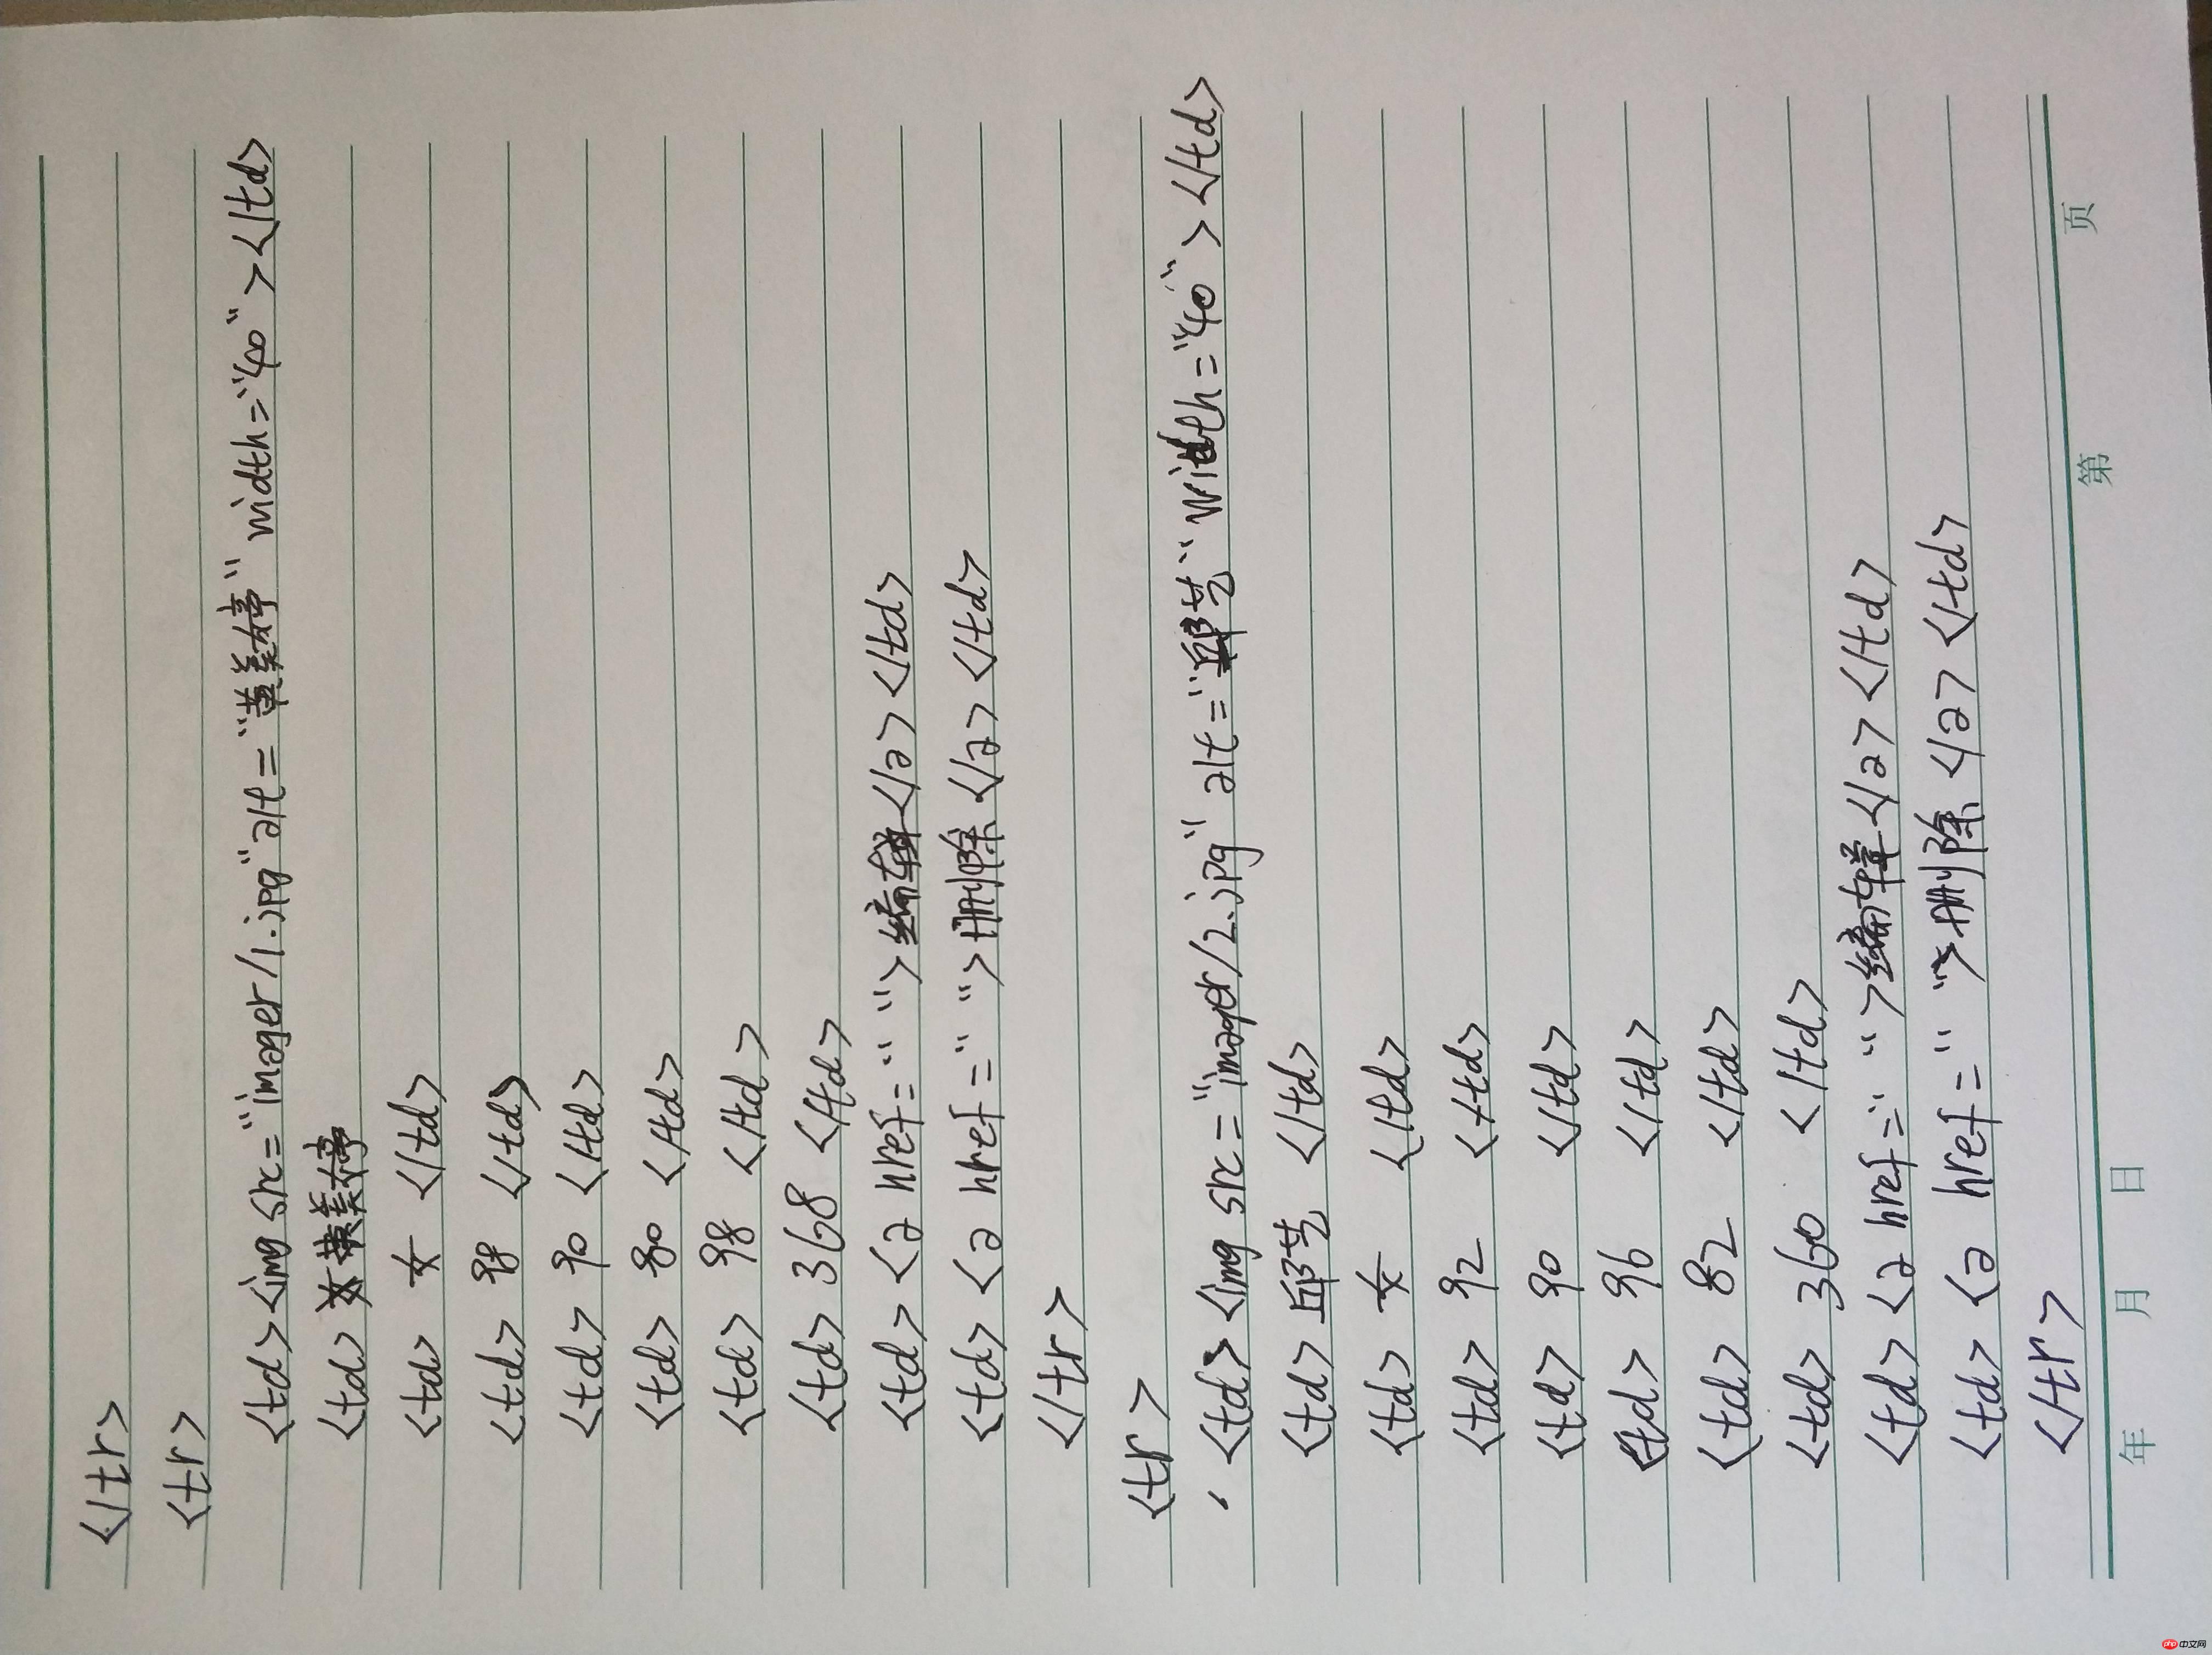 </tr>
<tr>
<td><img src="imager/1.jpg" alt="黄美婷" width="40"></td>
<td>黄美婷
<td>女</td>
<td>98</td>
<td>90</td>
<td>80</td>
<td>98</td>
<td>368</td>
<td><a href=" ">编辑</a></td>
<td><a href=" ">删除</a></td>
</tr>
<tr>
<td><img src="imager/2.jpg" alt="邱艺" width="40"></td>
<td>邱艺</td>
<td>女</td>
<td>92</td>
<td>90</td>
<td>96</td>
<td>82</td>
<td>360</td>
<td><a href=" ">编辑</a></td>
<td><a href=" ">删除</a></td>
</tr>
年 月 日 第 页
php 中文网